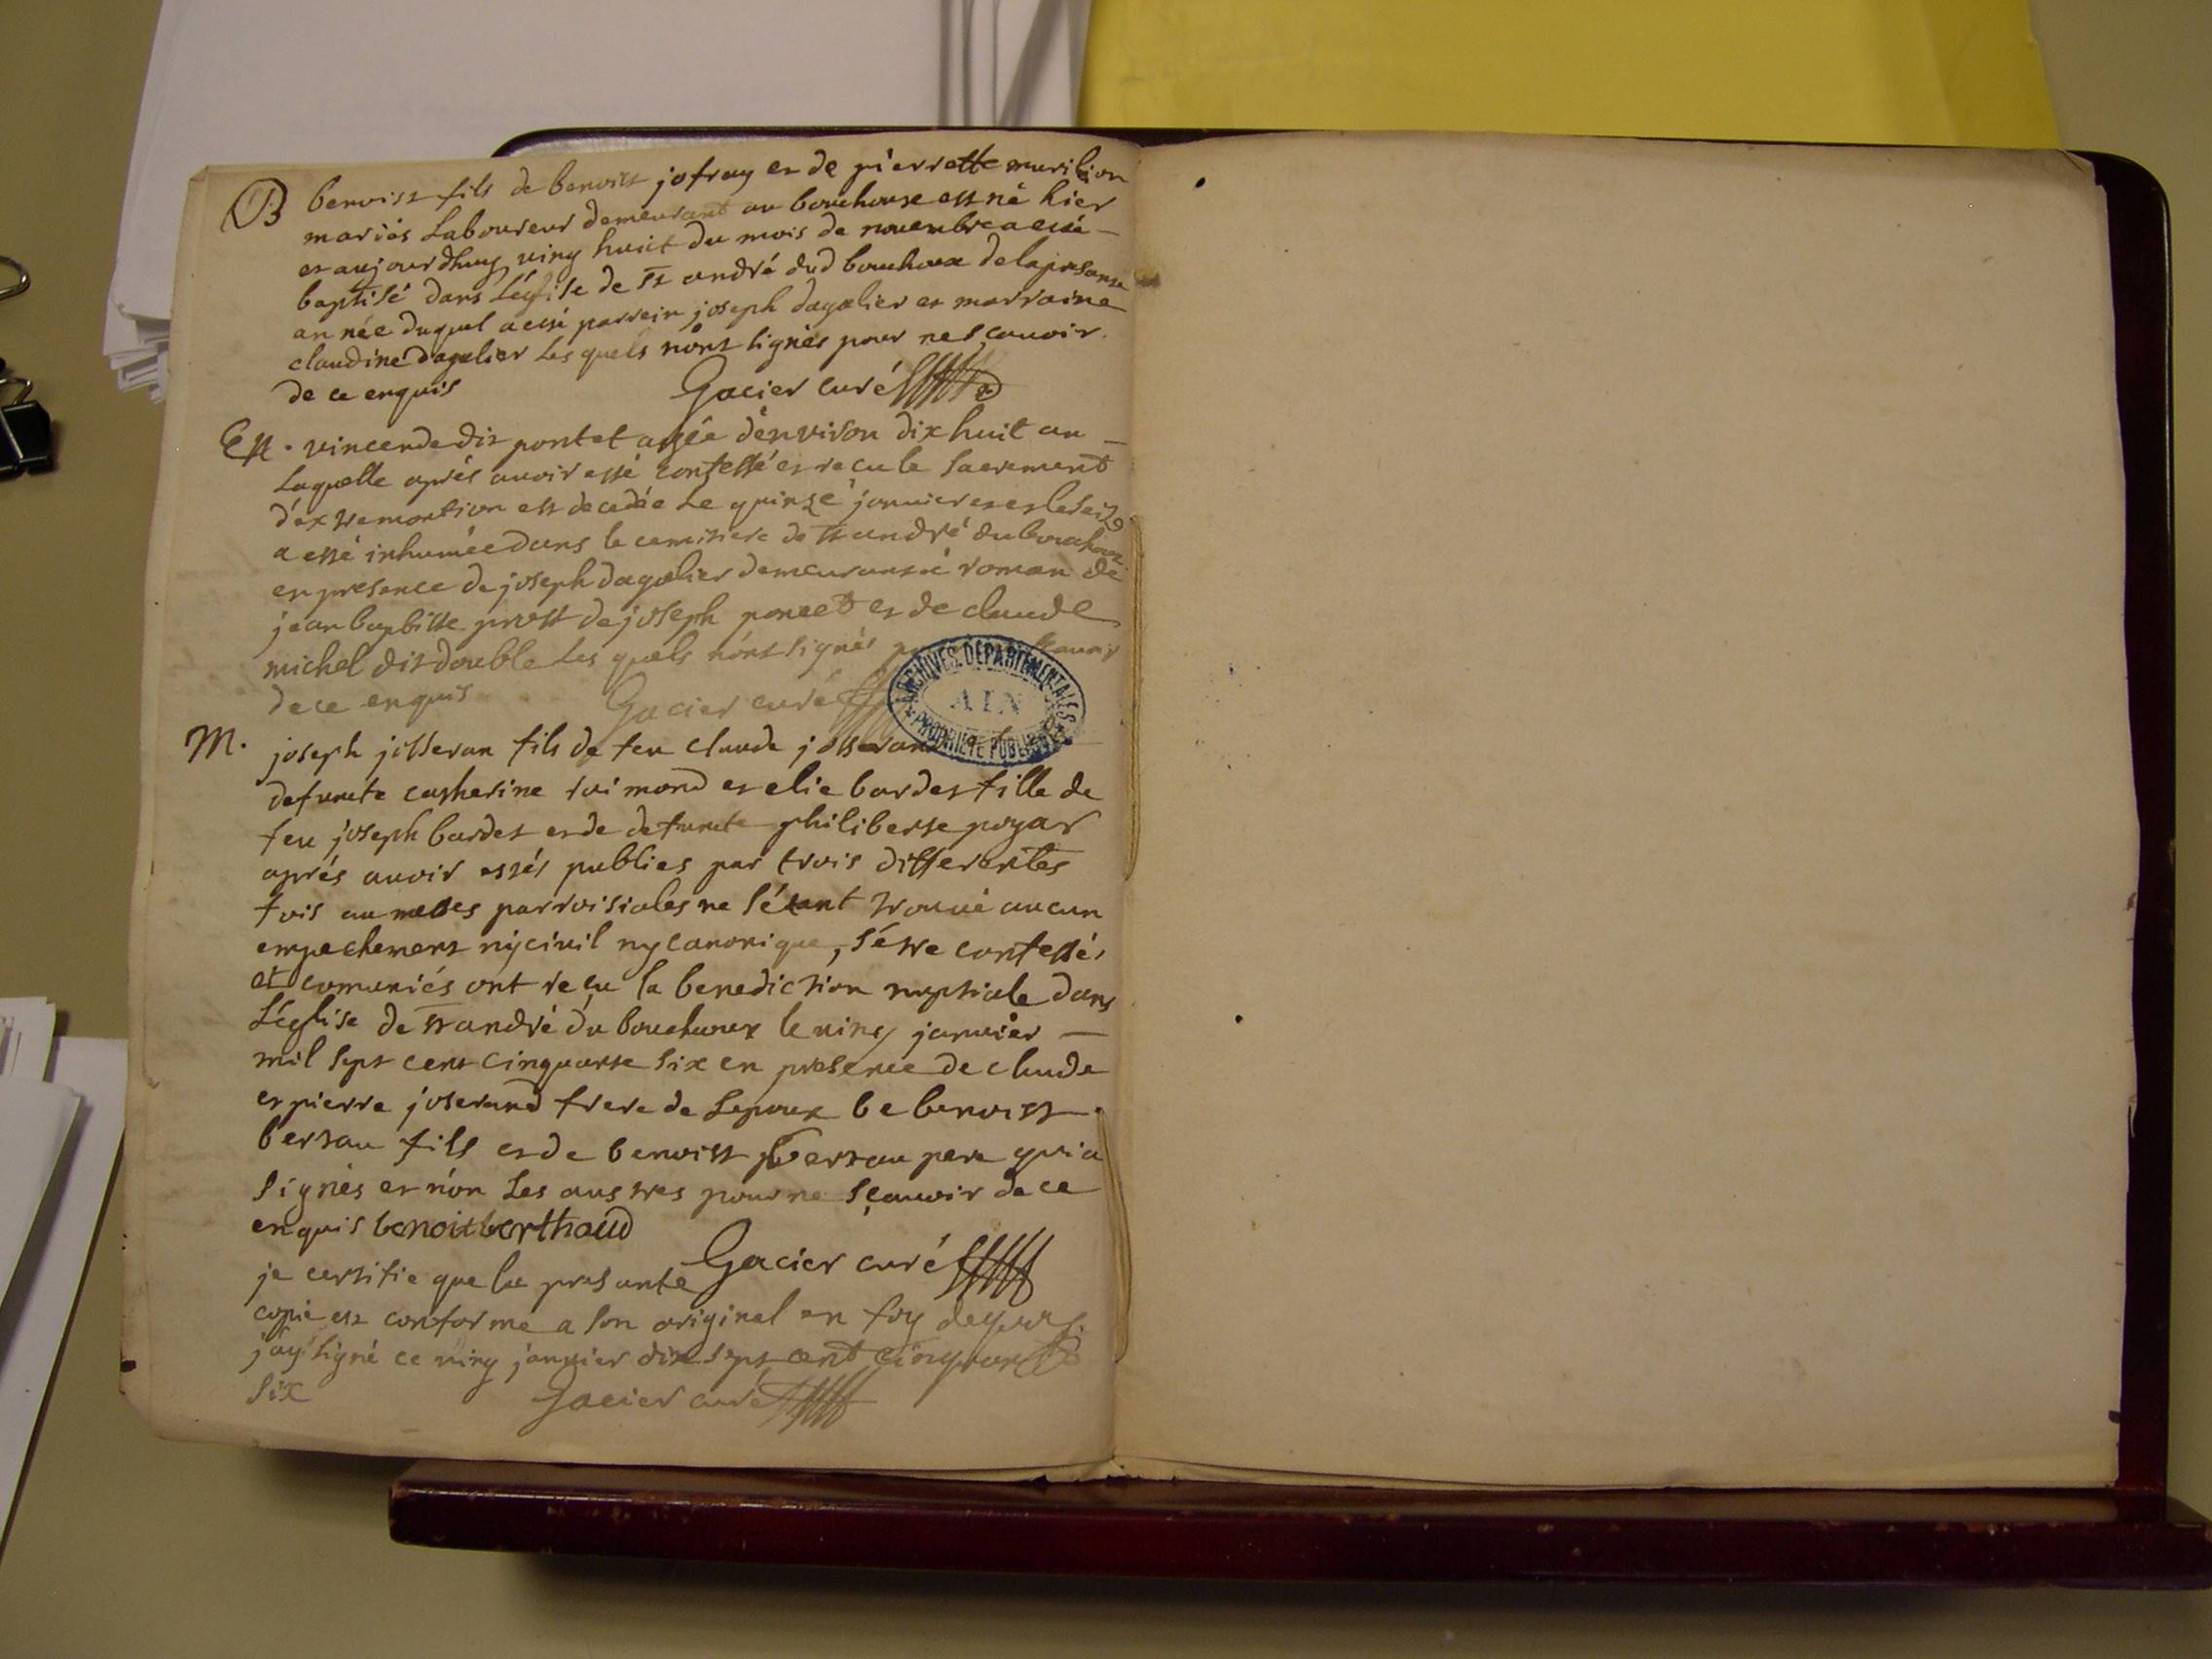 B benoist fils de benoist jofray et de pierrette
mariés Laboureur demeurant au bouchoux est né hier
et aujourdhuy vingt huict du mois de nouembre a esté
baptisé dans Léglise de st andré dud bouchoux de la presante
année duquel a esté parrein joseph dagalier et marraine
claudine dagalier Les quels n'ont signés pour ne sçauoir
de ce enquis Gacier curé
En. vincende dit pontet agée dénviron dix huit an
Laquelle aprés auoir esté confessé et recu le sacrement
d'éxtremontion est decedée Le quinze januier et et le seize
a esté inhumée dans le cemitiere de st andré du bouchoux
en presence de joseph dagalier demeurant a roman de
jean baptiste prost de joseph poncet et de claude
michel dit double Les quels n'ont signés
de ce enquis Gacier curé
ARCHIVES DÉPARTEMENTALES
AIN
PROPRIÉTÉ PUBLIQUE
M. joseph josseran fils de feu claude josserand
defunte catherine raimond et elie bardet fille de
feu joseph bardet et de defunte philiberte poyar
aprés auoir estés publies par trois differentes
fois au messes parroisiales ne sétant trouué aucun
empechement ny ciuil ny canonique, s'étre confessés
et comuniés ont reçu la benediction nuptiale dans
Léglise de st andré du bouchoux le ving januier
mil sept cent cinquante six en presence de claude
et pierre joserand frere de Lepoux be benoist
bertau fils et de benoist bertau pere qui a
signés et nón Les austres pour ne sçauoir de ce
enquis benoit berthaud
Gacier curé
je certifie que la presante
copie est conforme a son original en foy de quoy
j'ay signé ce ving januier dix sept cent cinquante
six Gacier curé